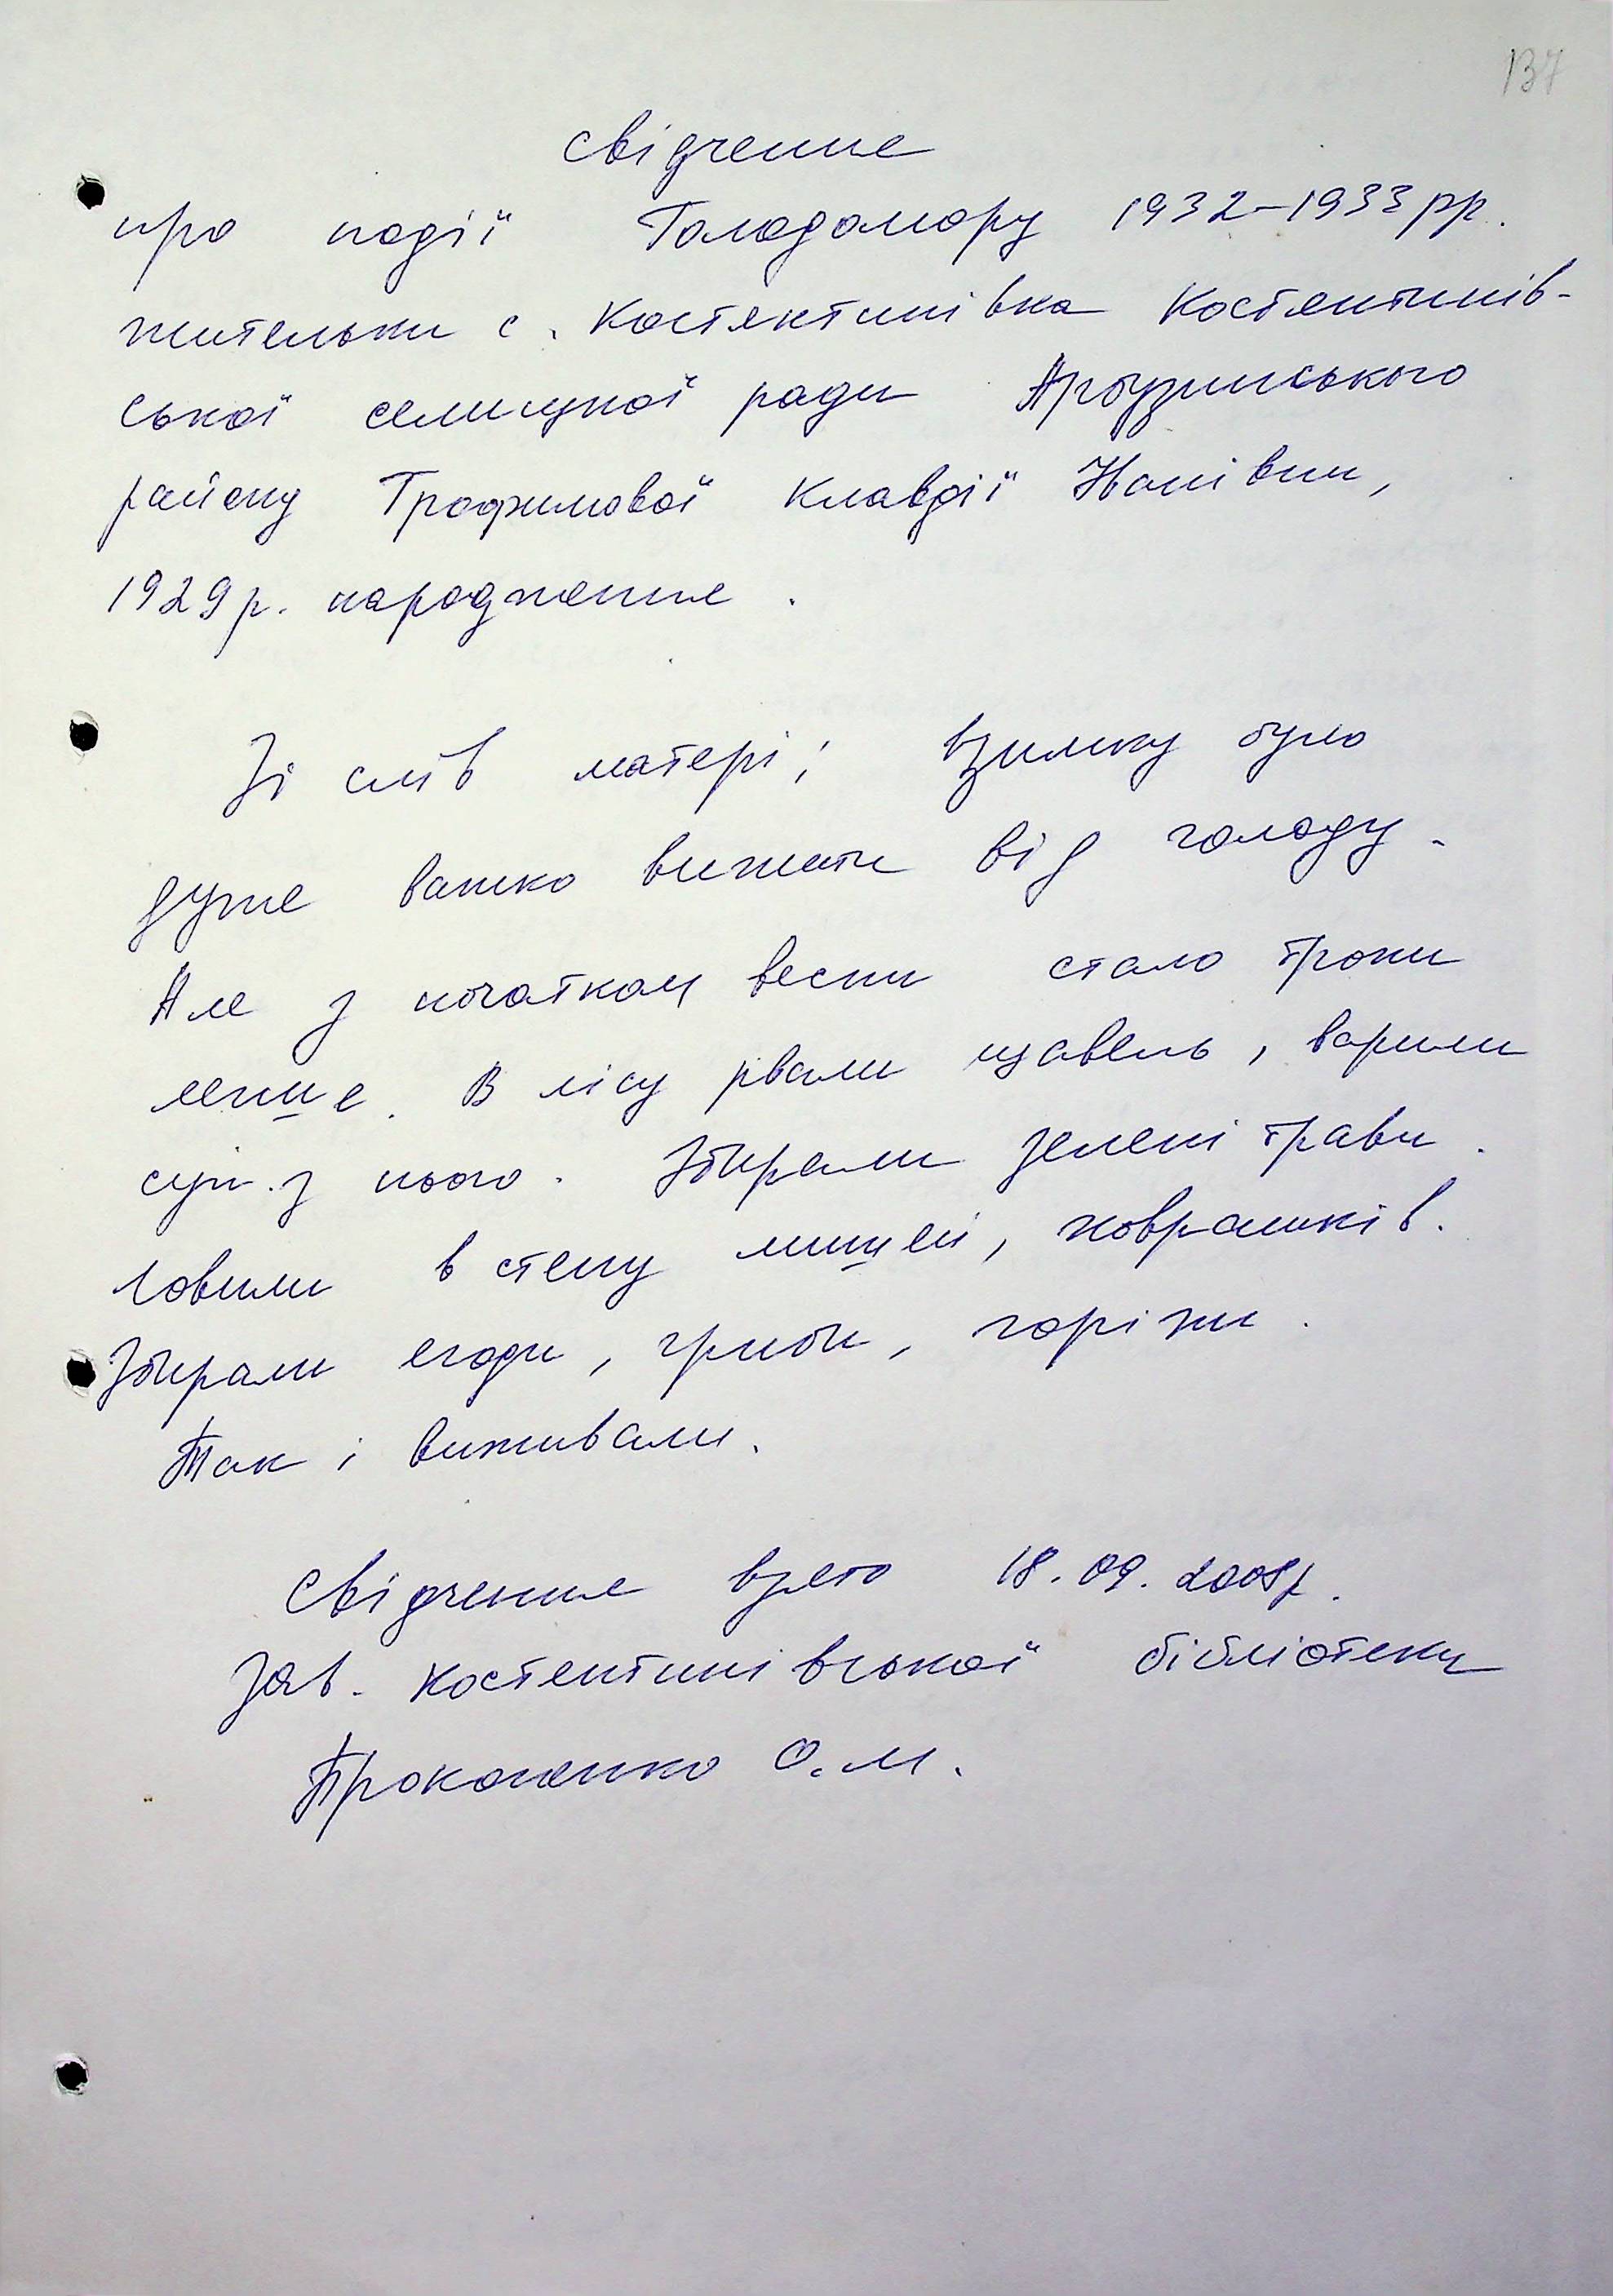 137
Свідчення
про події Голодомору 1932-1933 рр.
жительки с. Костянтинівка Костянтинів-
ської селищної ради Арбузинського
району Трофимової Клавдії Іванівни,
1929 р. народження.
Зі слів матері; взимку було
дуже важко вижити від голоду.
Але з початком весни стало трохи
легше. В лісу рвали щавель, варили
суп з нього. Збирали зелені трави.
Ловили в степу мишей, ховрашків.
Збирали ягоди, гриби, горіхи.
Так і виживали.
Свідчення взято 18.09.2008р.
Зав. Костянтинівської бібліотеки
Прокопенко О.М.